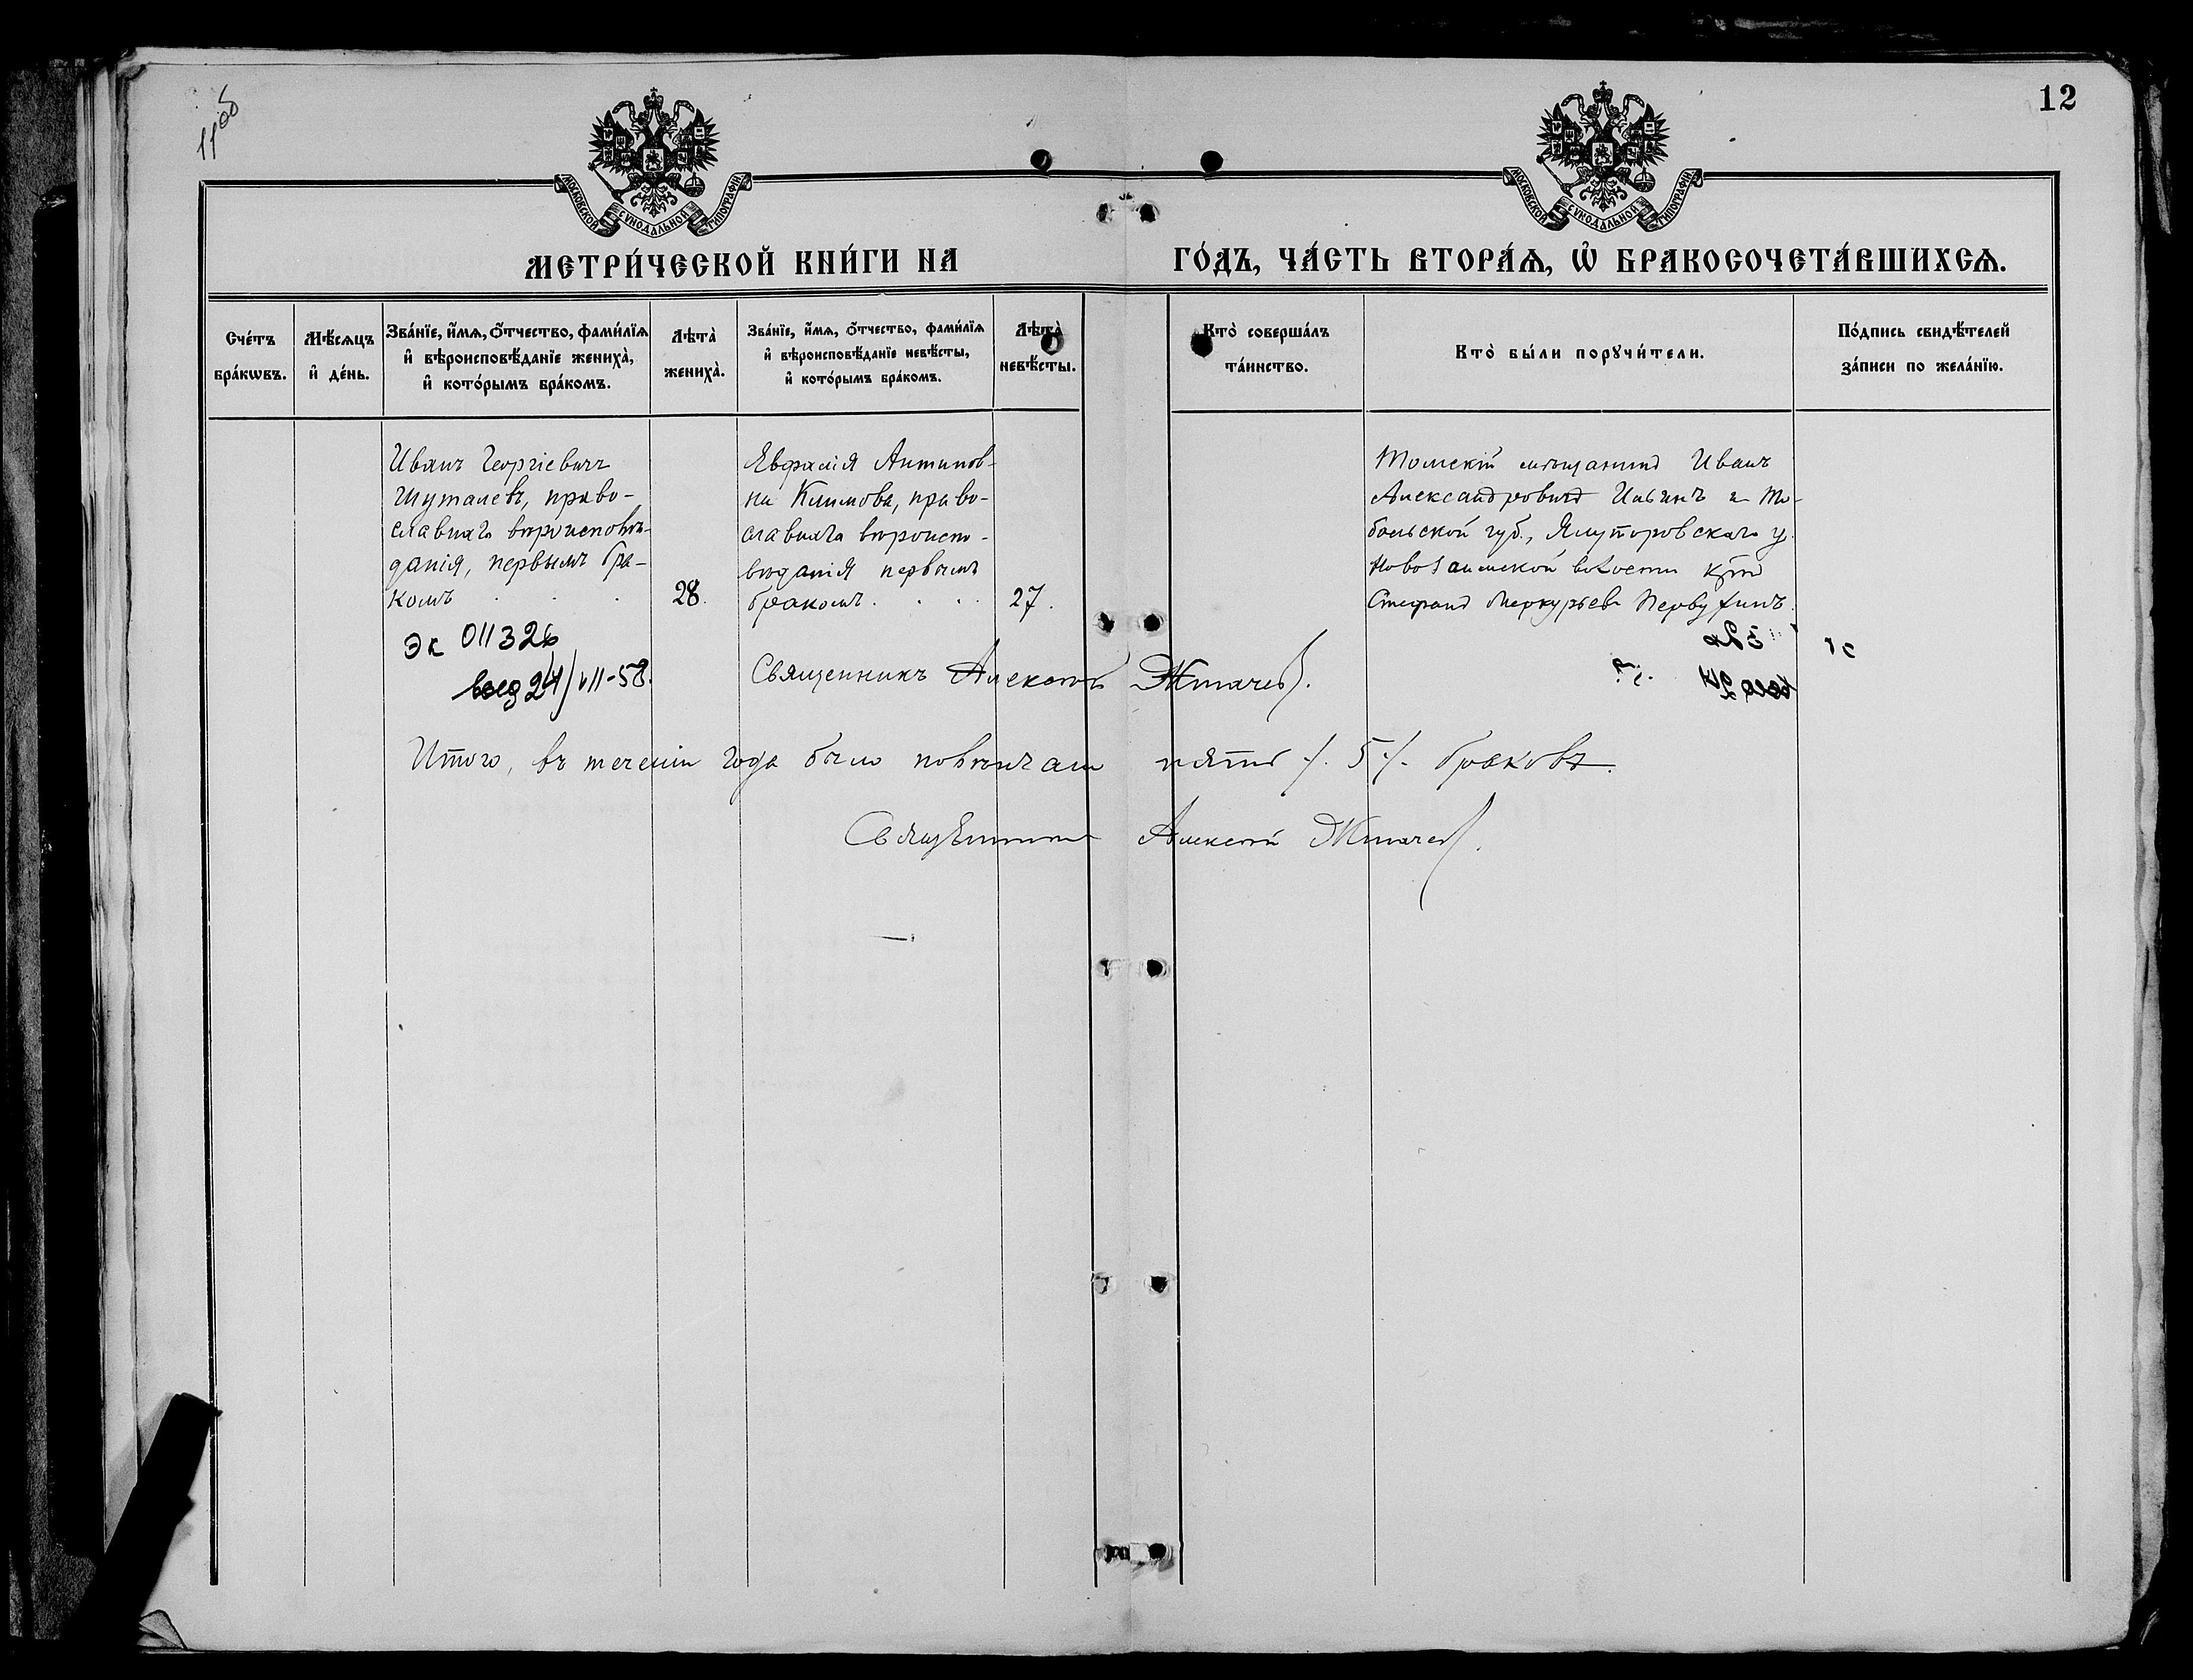 12
МОСКОВСКОЙ СѴНОДАЛЬНОЙ ТИПОГРАФІИ
МОСКОВСКОЙ СѴНОДАЛЬНОЙ ТИПОГРАФІИ
МЕТРИ́ЧЕСКОЙ КНИ́ГИ НА ГО́ДЪ, ЧА́СТЬ ВТОРА́Ѧ, Ѽ БРАКОСОЧЕТА́ВШИХСѦ.
Сче́тъ
бра́кѡвъ.
Мѣ́сѧцъ
и҆ де́нь.
Зва́нїе, и҆́мѧ, ѻ҆́тчество, фами́лїѧ
и҆ вѣроисповѣ́данїе жениха̀,
и҆ кото́рымъ бра́комъ.
Лѣта̀
жениха̀.
Зва́нїе, и҆́мѧ, ѻ҆́тчество, фами́лїѧ
и҆ вѣроисповѣ́данїе невѣ́сты,
и҆ кото́рымъ бра́комъ.
Лѣта̀
невѣ́сты.
Кто̀ соверша́лъ
та́инство.
Кто̀ бы́ли порꙋчи́тели.
По́дпись свидѣ́телей
за́писи по жела́нїю.
Иванъ Георгіевичъ
Шуталевъ, право-
славнаго вѣроисповѣ-
данія, первымъ бра-
комъ . . .
28.
Евфалія Антипов-
на Климова, право-
славнаго вѣроиспо-
вѣданія первымъ
бракомъ. . . .
27.
Томскій мѣщанинъ Иванъ
Александровичъ Ильинъ и То-
больской губ., Ялуторовскаго у.
Новозаимской волости кр-нъ
Стефанъ Меркурьевъ Первухинъ.
Эк 011326
выд 24/VII-58.
Священникъ Алексѣй
Итого, въ теченіи года было повѣнчано пять ./. 5 ./. браковъ.
Священникъ Алексѣй